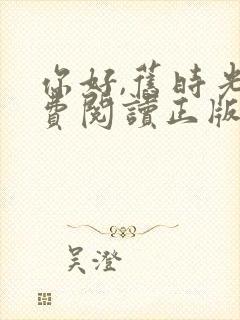 你好,舊時光
費閱讀正版
吴澄